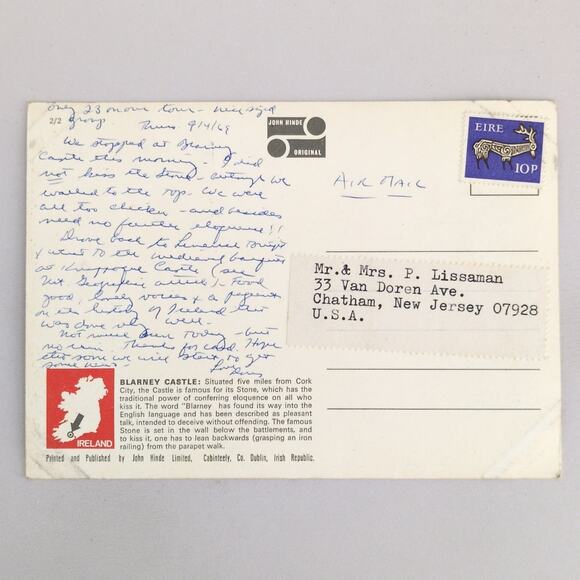 only 23 on our tour - nice sized
2/2 group
Thurs. 9/4/69
We stopped at Blarney
Castle this morning - I did
not kiss the Stone - although we
walked to the top. We were
all too chicken - and besides
need no further eloquence!!
Drove back to Limerick tonight
& went to the mediaeval banquet
at Knappogue Castle (see
Nat. Geographic article) - Food
good, lovely voices & a pageant
on the history of Ireland that
was done very well.
Not much sun today - but
no rain. Thanks for card. Hope
that soon we will start to get
some news - Love
JOHN HINDE
ORIGINAL
AIR MAIL
EIRE
10P
Mr.& Mrs. P. Lissaman
33 Van Doren Ave.
Chatham, New Jersey 07928
U.S.A.
IRELAND
BLARNEY CASTLE: Situated five miles from Cork
City, the Castle is famous for its Stone, which has the
traditional power of conferring eloquence on all who
kiss it. The word "Blarney has found its way into the
English language and has been described as pleasant
talk, intended to deceive without offending. The famous
Stone is set in the wall below the battlements, and
to kiss it, one has to lean backwards (grasping an iron
railing) from the parapet walk.
Printed and Published by John Hinde Limited, Cabinteely, Co. Dublin, Irish Republic.